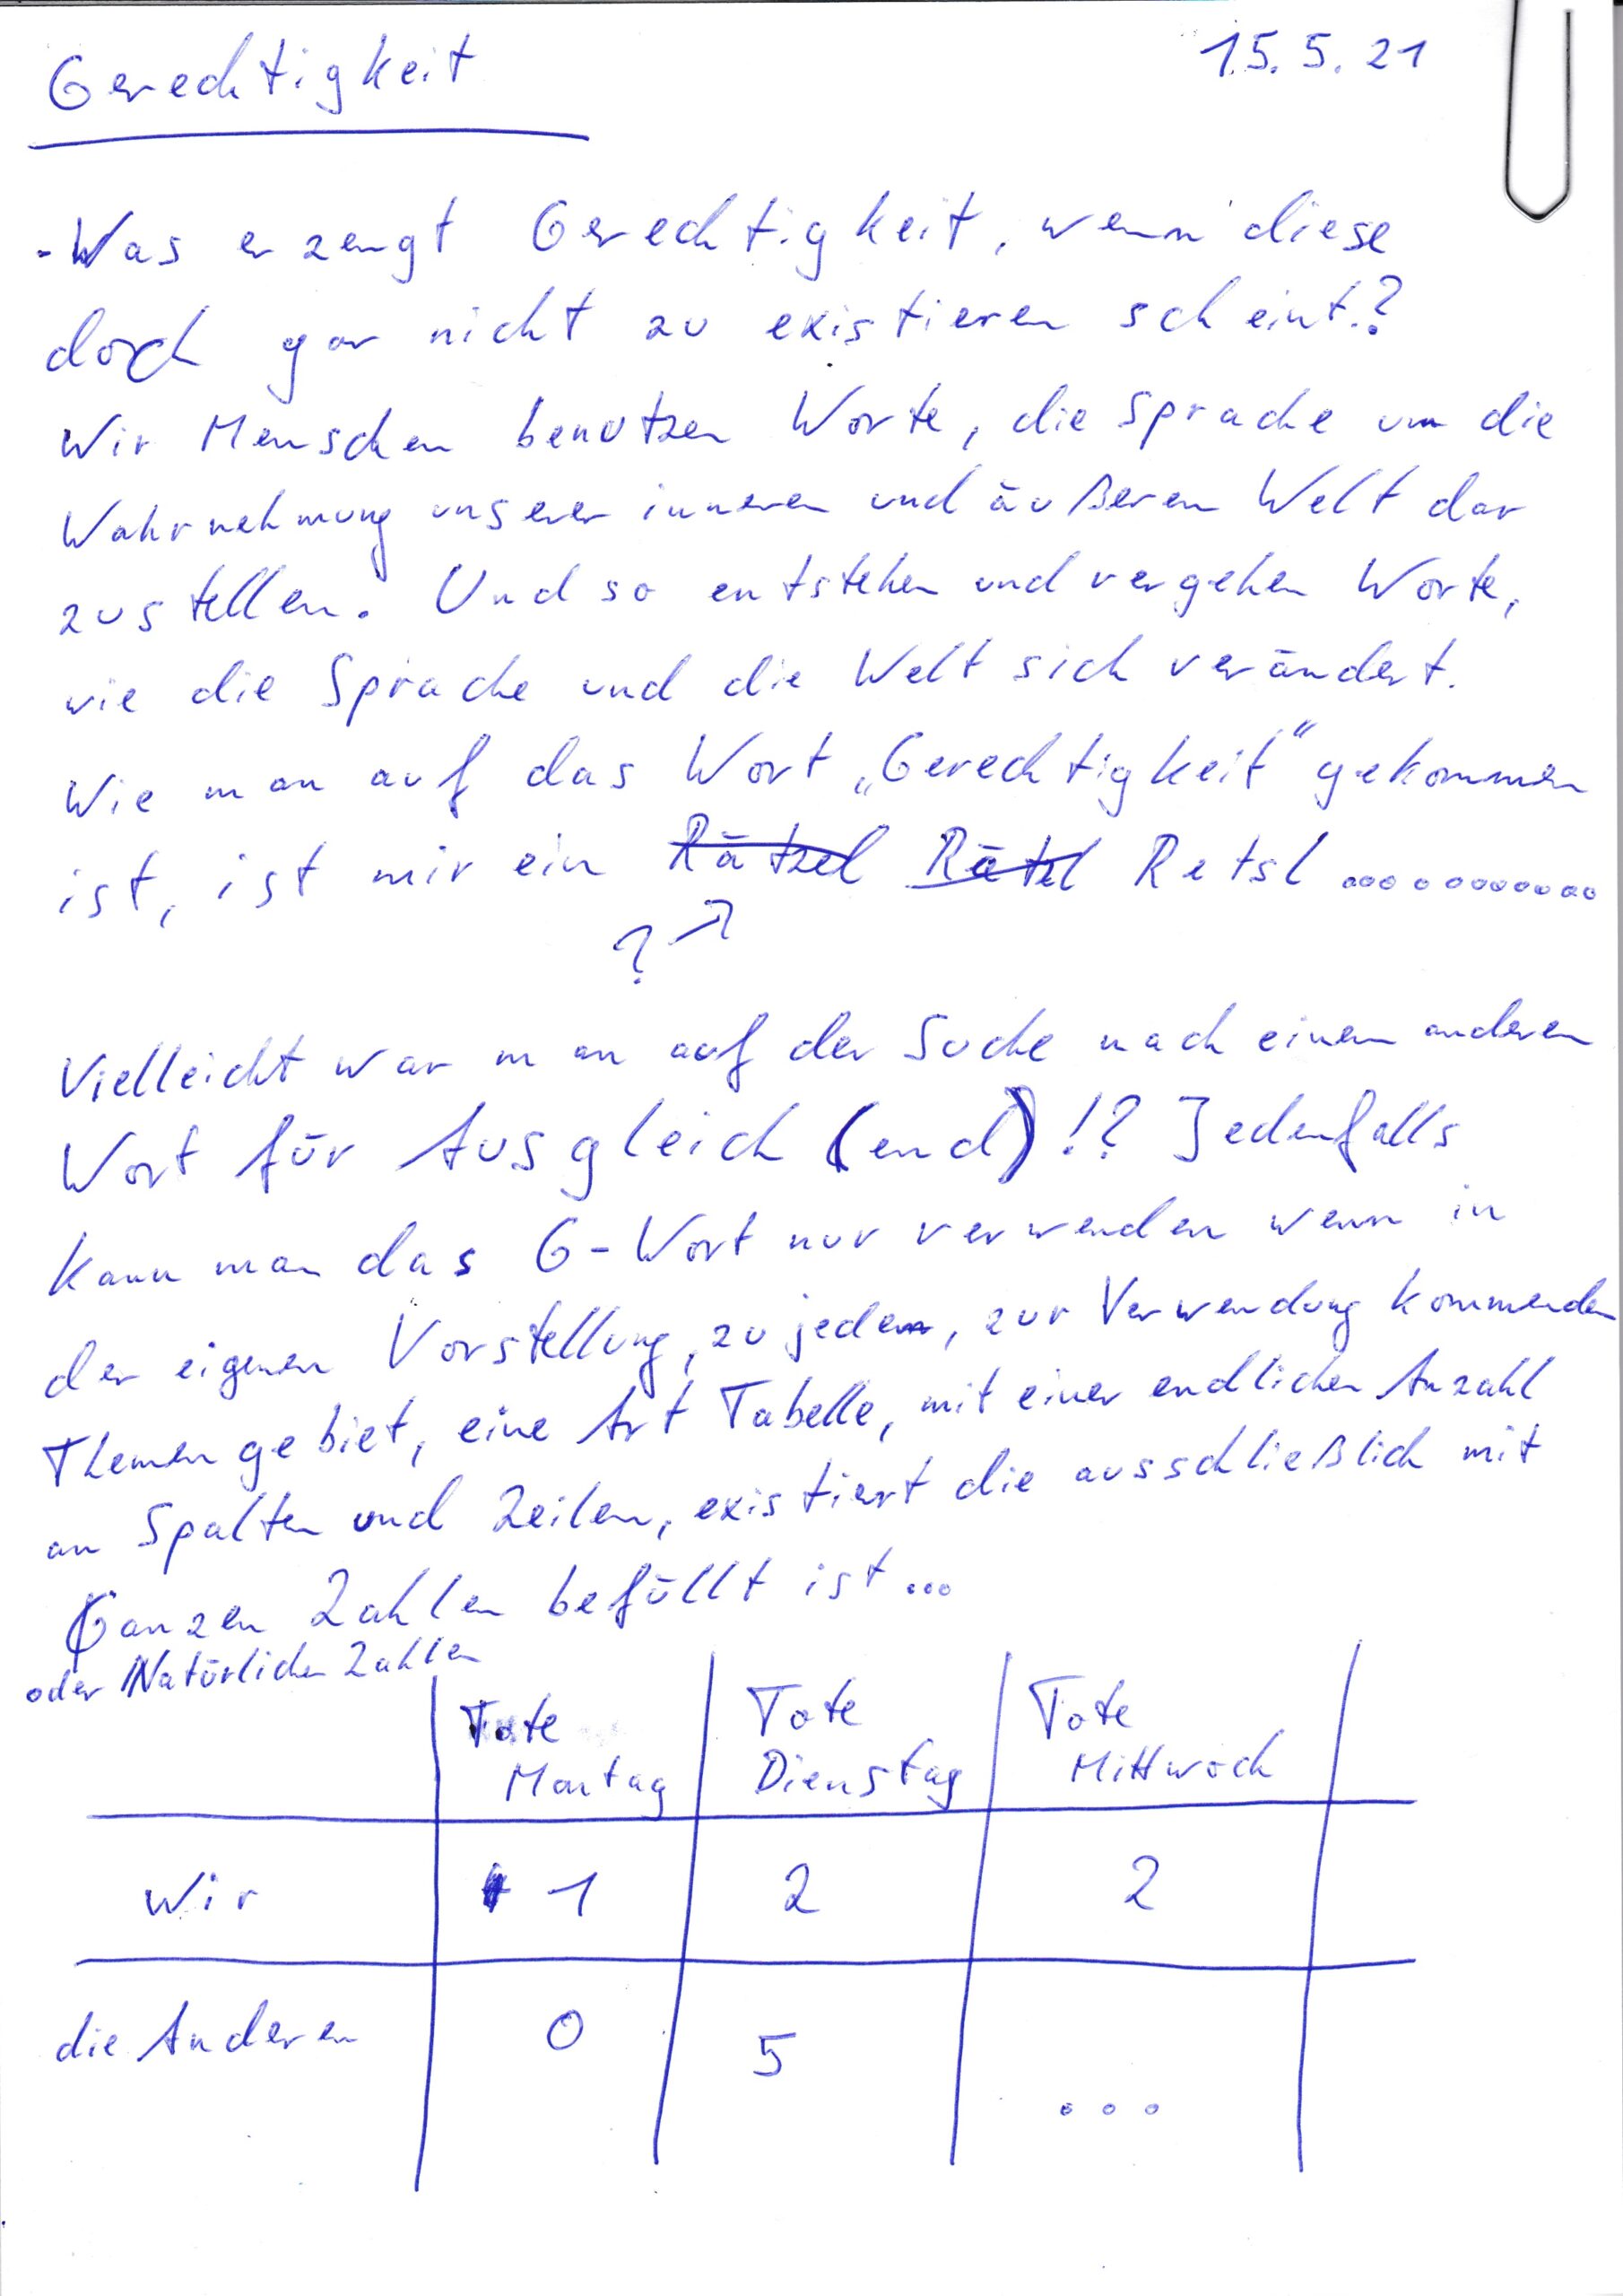 Gerechtigkeit 15.5.21
- Was erzeugt Gerechtigkeit, wenn diese
doch gar nicht zu existieren scheint.?
Wir Menschen benutzen Worte, die Sprache um die
Wahrnehmung unserer inneren und äußeren Welt dar
zustellen. Und so entstehen und vergehen Worte,
wie die Sprache und die Welt sich verändert.
Wie man auf das Wort „Gerechtigkeit" gekommen
ist, ist mir ein Rätzel Rätel Retsl ............
? ↗
Vielleicht war man auf der Suche nach einem anderen
Wort für Ausgleich (end) !? Jedenfalls
kann man das G-Wort nur verwenden wenn in
der eigenen Vorstellung, zu jedem, zur Verwendung kommenden
Themengebiet, eine Art Tabelle, mit einer endlichen Anzahl
an Spalten und Zeilen, existiert die ausschließlich mit
Ganzen Zahlen befüllt ist ...
oder Natürlichen Zahlen
Tote Montag Tote Dienstag Tote Mittwoch
Wir 1 2 2
die Anderen 0 5 ...